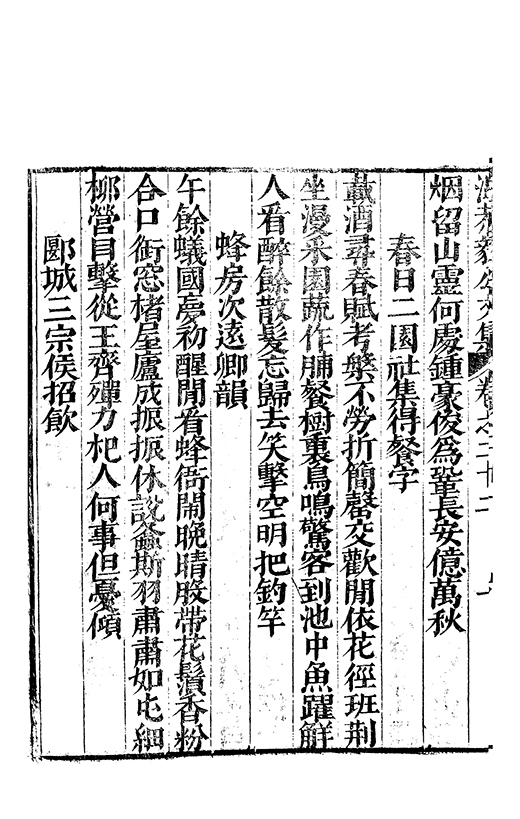 文集 卷之三十二
烟留山靈何處鍾豪俊爲鞏長安億萬秋
春日二園社集得餐字
載酒尋春賦考槃不勞折簡罄交歡閒依花徑班荆
坐漫釆園蔬作脯餐樹裏鳥鳴驚客到池中魚躍觧
人看醉餘散髮忘歸去笑擊空明把釣竿
蜂房次遠卿韻
午餘蟻國夢初醒閒看蜂衙鬧晚晴股帶花鬚香粉
合口銜窓楮屋廬成振振休說螽斯羽肅肅如屯細
柳營目擊從王齊殫力杞人何事但憂傾
郾城三宗侯招飲